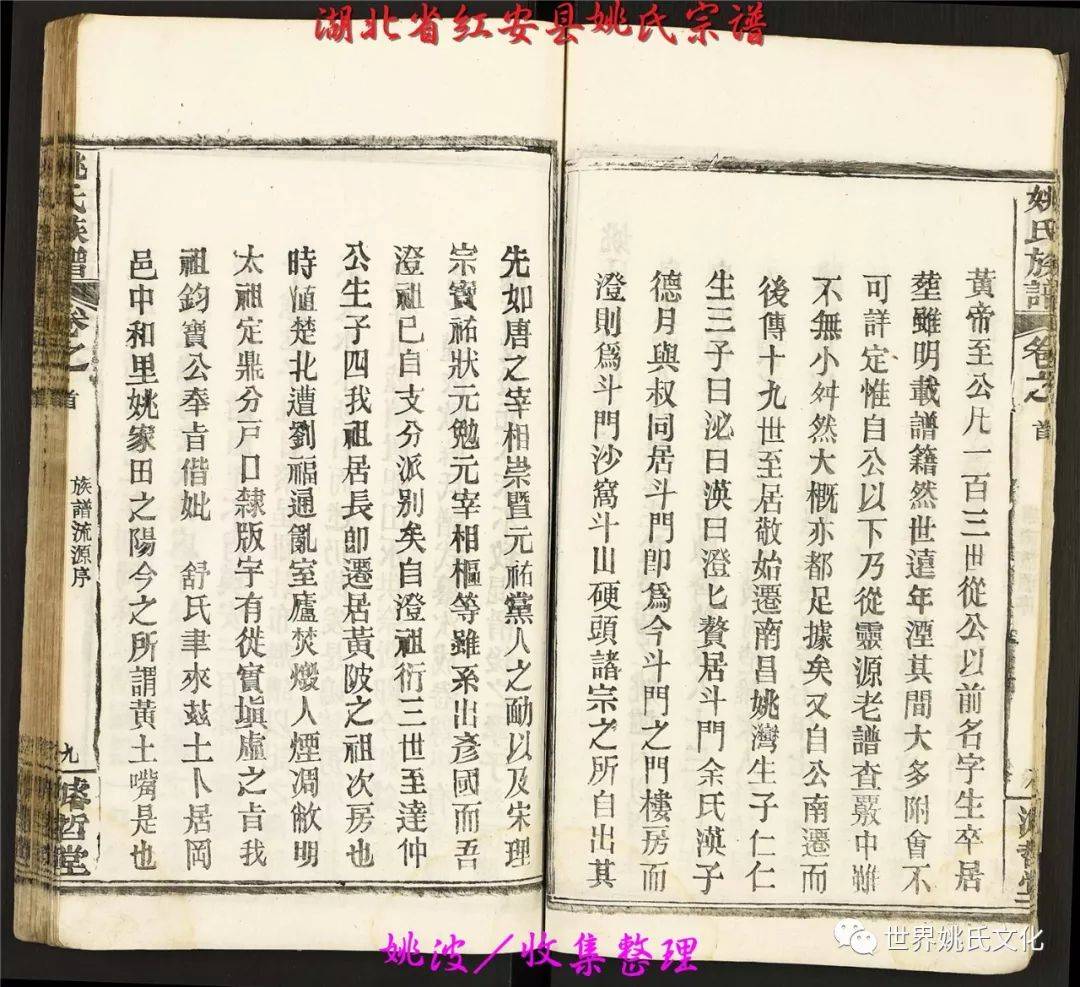 湖北省红安县姚氏宗谱
姚氏族譜 卷之首
黃帝至公凡一百三世從公以前名字生卒居
塟雖明載譜籍然世遠年湮其間大多附會不
可詳定惟自公以下乃從靈源老譜查覈中雖
不無小舛然大概亦都足據矣又自公南遷而
後傳十九世至居敬始遷南昌姚灣生子仁仁
生三子曰泌曰渶曰澄匕贅居斗門余氏渶子
德月與叔同居斗門卽爲今斗門之門樓房而
澄則爲斗門沙窩斗山硬頭諸宗之所自出其
先如唐之宰相崇暨元祐黨人之勔以及宋理
宗寶祐狀元勉元宰相樞等雖系出彥國而吾
澄祖已自支分派别矣自澄祖衍三世至達仲
公生子四我祖居長卽遷居黃陂之祖次房也
時値楚北遭劉福通亂室廬焚燬人煙凋敝明
太祖定鼎分戸口隸版宇有從實塡虛之㫖我
祖鈞寶公奉㫖偕妣 舒氏聿來茲土卜居岡
邑中和里姚家田之陽今之所謂黃土嘴是也
姚氏族譜 卷之首 族譜流源序 九 濬哲堂
姚波／收集整理
世界姚氏文化